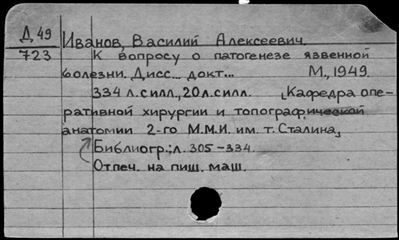 Д 49
723
Иванов, Василий Алексеевич.
К вопросу о патогенезе язвенной
болезни. Дисс... докт... М., 1949.
334 л. с илл., 20 л. силл. [Кафедра опе-
ративной хирургии и топографической
анатомии 2-го М.М.И. им. т. Сталина]
Библиогр.: л. 305-334.
Отпеч. на пиш. маш.